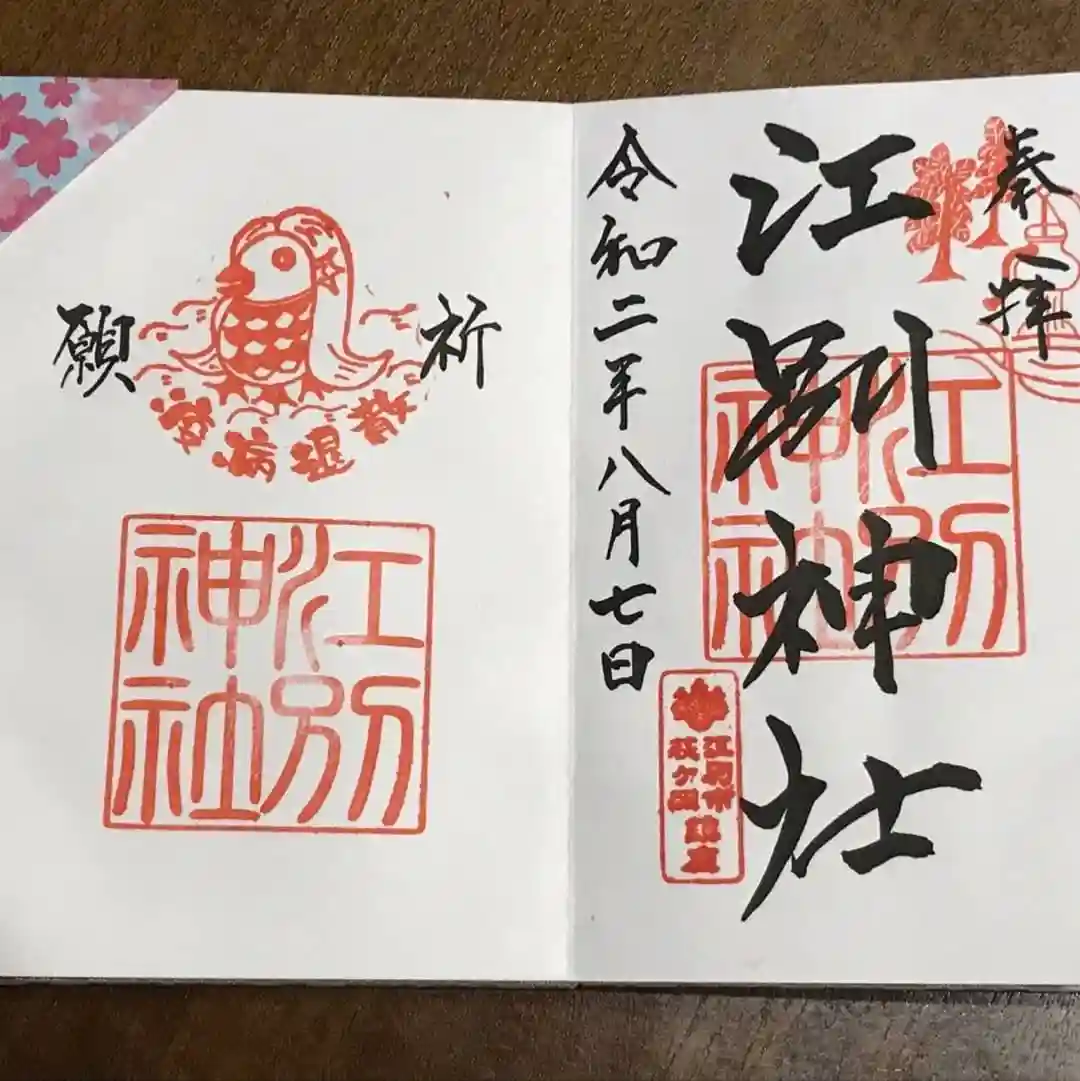 奉拝
江別神社
江別神社
江別市
萩ヶ岡
鎮座
令和二年八月七日
祈願
疫病退散
江別神社